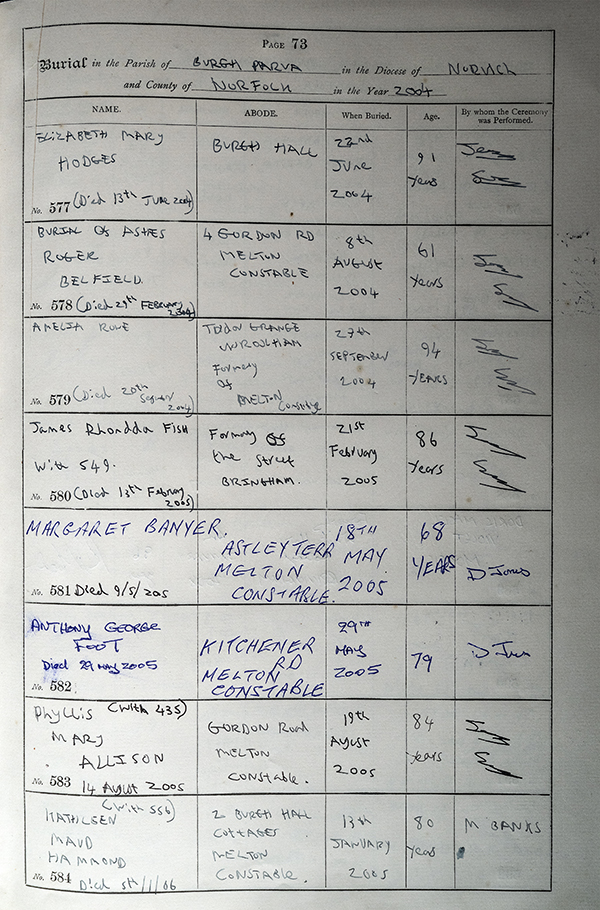 PAGE 73
Burial in the Parish of BURGH PARVA in the Diocese of NORWICH
and County of NORFOLK in the Year 2004
NAME. ABODE. When Buried. Age. By whom the Ceremony was Performed.
ELIZABETH MARY
HODGES
No. 577 (Died 13th JUNE 2004)
BURGH HALL
22nd
JUNE
2004
91
years
BURIAL OF ASHES
ROGER
BELFIELD.
No. 578 (Died 29th FEBRUARY 2004)
4 GORDON RD
MELTON
CONSTABLE
8th
AUGUST
2004
61
years
AMELIA ROWE
No. 579 (Died 20th
2004)
GRANGE
Formerly
of
MELTON Constable
27th
SEPTEMBER
2004
94
YEARS
James Rhondda FISH
With 549.
No. 580 (Died 13th February
2005)
Formerly of
the Street
BRININGHAM.
21st
February
2005
86
Years
MARGARET BANYER.
No. 581 Died 9/5/205
ASTLEY TERR
MELTON
CONSTABLE.
18TH
MAY
2005
68
YEARS
D Jones
ANTHONY GEORGE
FOOT
Died 29 MAY 2005
No. 582
KITCHENER
RD
MELTON
CONSTABLE
29TH
MAY
2005
79
D
Phyllis (with 435)
MARY
ALLISON
No. 583 14 August 2005
GORDON Road
MELTON
CONSTABLE.
19th
AUGUST
2005
84
years
(With 556)
KATHLEEN
MAUD
HAMMOND
No. 584 Died 5th/1/06
2 BURGH HALL
COTTAGES
MELTON
CONSTABLE.
13th
JANUARY
2005
80
Years
M BANKS